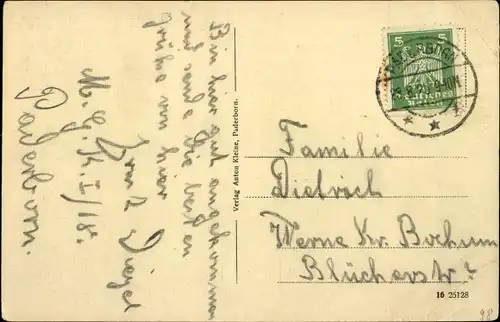 Bin hier gut angekommen
und sende die besten
Grüße von hier
Ernst
M. G. K. I/18.
Paderborn.
Verlag Anton Kleine, Paderborn.
5 5
Deutsches
Reich
PADERBORN
Familie
Dietrich
Werne Kr. Bochum
Blücherstr
16 25128
48